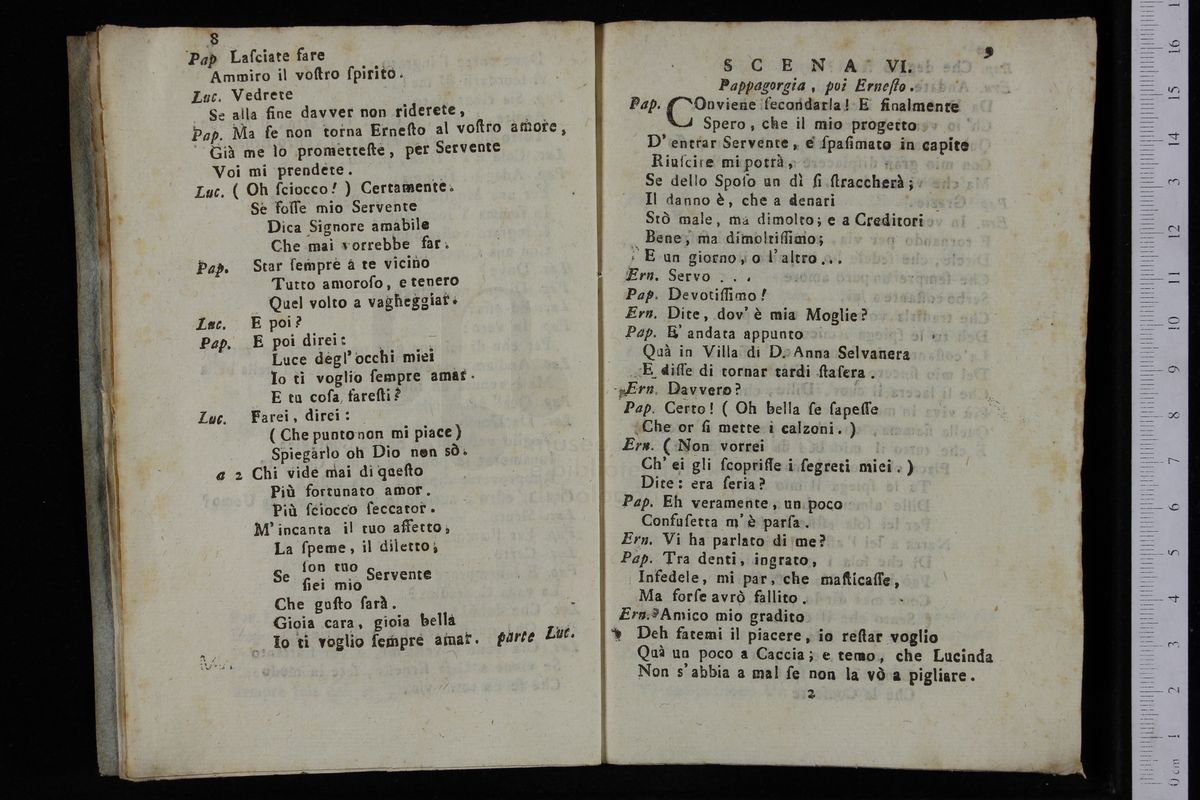 8
Pap Laſciate fare
Ammiro il voſtro ſpirito.
Luc. Vedrete
Se alla fine davver non riderete,
Pap. Ma ſe non torna Erneſto al voſtro amore,
Già me lo prometteſte, per Servente
Voi mi prendete.
Luc. ( Oh ſciocco! ) Certamente.
Se foſſe mio Servente
Dica Signore amabile
Che mai vorrebbe far.
Pap. Star ſempre a te vicino
Tutto amoroſo, e tenero
Quel volto a vagheggiar.
Luc. E poi?
Pap. E poi direi:
Luce degl' occhi miei
Io ti voglio ſempre amar.
E tu coſa fareſti?
Luc. Farei, direi:
( Che punto non mi piace )
Spiegarlo oh Dio non sò.
a 2 Chi vide mai di queſto
Più fortunato amor.
Più ſciocco ſeccator.
M' incanta il tuo affetto,
La ſpeme, il diletto,
Se ſon tuo Servente
ſiei mio
Che guſto ſarà.
Gioia cara, gioia bella
Io ti voglio ſempre amar. parte Luc.
9
SCENA VI.
Pappagorgia, poi Erneſto.
Pap. COnviene ſecondarla! E finalmente
Spero, che il mio progetto
D' entrar Servente, e ſpaſimato in capite
Riuſcire mi potrà,
Se dello Spoſo un dì ſi ſtraccherà;
Il danno è, che a denari
Stò male, ma dimolto; e a Creditori
Bene, ma dimoltiſſimo;
E un giorno, o l' altro...
Ern. Servo . . .
Pap. Devotiſſimo!
Ern. Dite, dov' è mia Moglie?
Pap. E' andata appunto
Quà in Villa di D. Anna Selvanera
E diſſe di tornar tardi ſtaſera.
Ern. Davvero?
Pap. Certo! ( Oh bella ſe ſapeſſe
Che or ſi mette i calzoni. )
Ern. ( Non vorrei
Ch' ei gli ſcopriſſe i ſegreti miei. )
Dite: era ſeria?
Pap. Eh veramente, un poco
Confuſetta m' è parſa.
Ern. Vi ha parlato di me?
Pap. Tra denti, ingrato,
Infedele, mi par, che maſticaſſe,
Ma forſe avrò fallito.
Ern. Amico mio gradito
Deh fatemi il piacere, io reſtar voglio
Quà un poco a Caccia; e temo, che Lucinda
Non s' abbia a mal ſe non la vò a pigliare.
2